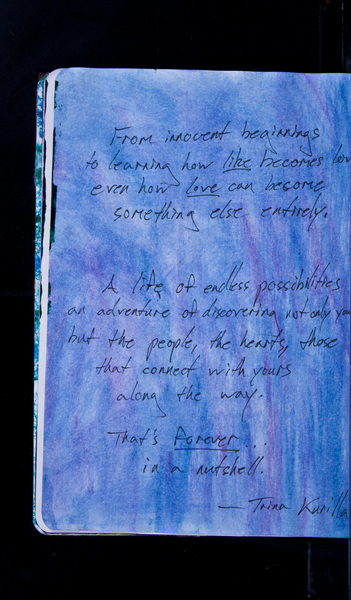 From innocent beginnings
to learning how like becomes lov
even how love can become
something else entirely.
A life of endless possibilities
an adventure of discovering not only yo
but the people, the hearts, those
that connect with yours
along the way.
That's Forever...
in a nutshell.
— Trina Kurilla